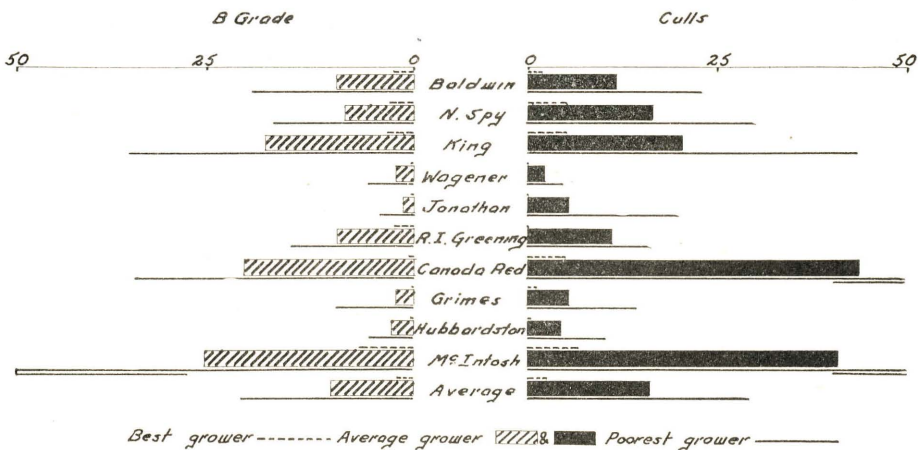 B Grade Culls
50 25 0 0 25 50
Baldwin
N. Spy
King
Wagener
Jonathan
R.I. Greening
Canada Red
Grimes
Hubbardston
Mc Intosh
Average
Best grower Average grower & Poorest grower